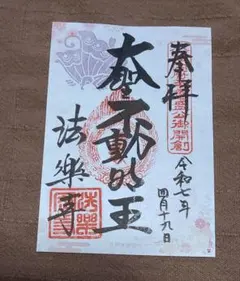 奉拝
令和七年
四月十九日
大聖不動明王
法樂寺